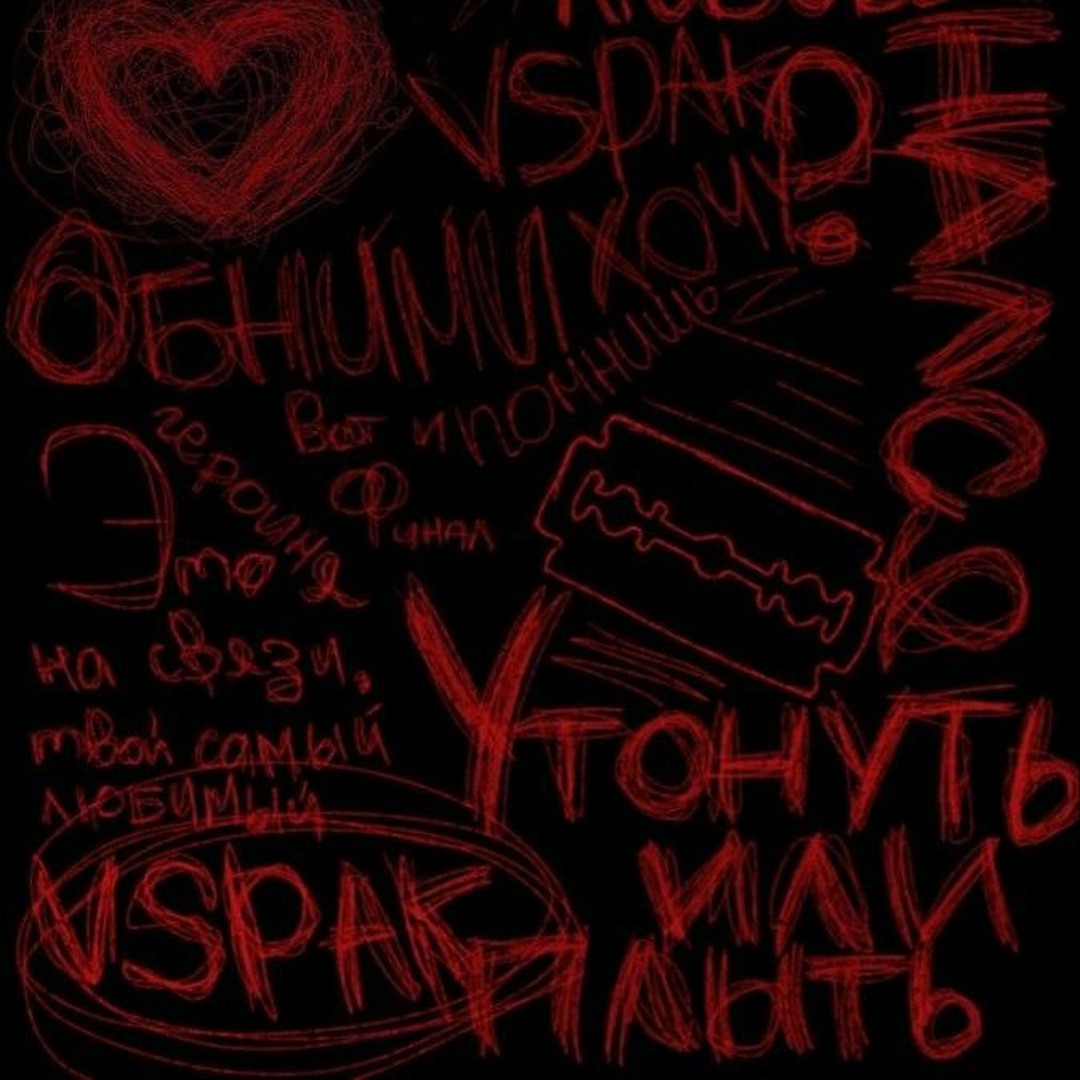 VSPAK
ОБНИМИ
ХОЧУ
Вот и помнишь
героиня
Финал
Это я
на связи,
твой самый
любимый
VSPAK
Утонуть
или
плыть